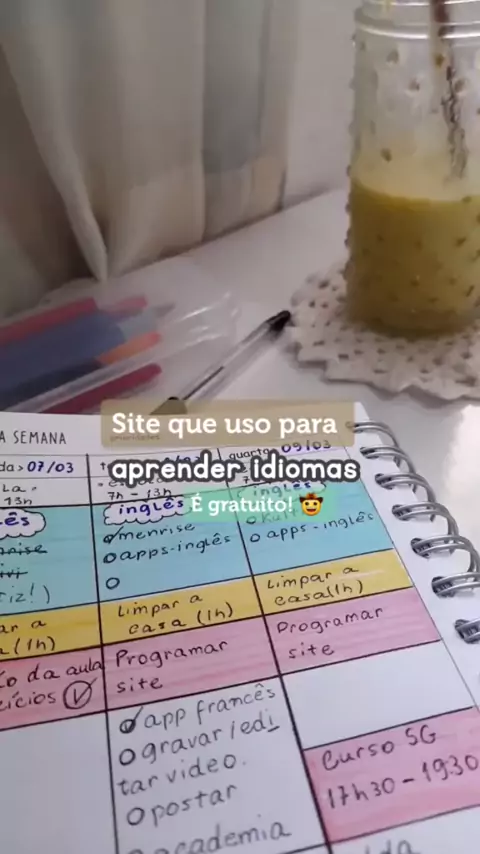 Site que uso para
aprender idiomas
É gratuito! 🤠
A SEMANA
da > 07/03
13h
ês
iz!)
ar a
a (1h)
o da aula
cícios
7h - 13h
inglês
menrise
apps-inglês
Limpar a
casa (1h)
Programar
site
app francês
gravar/edi
tar video.
postar
academia
quarta 09/03
inglês
apps-inglês
Limpar a
casa(1h)
Programar
site
Curso 5G
17h30-1930